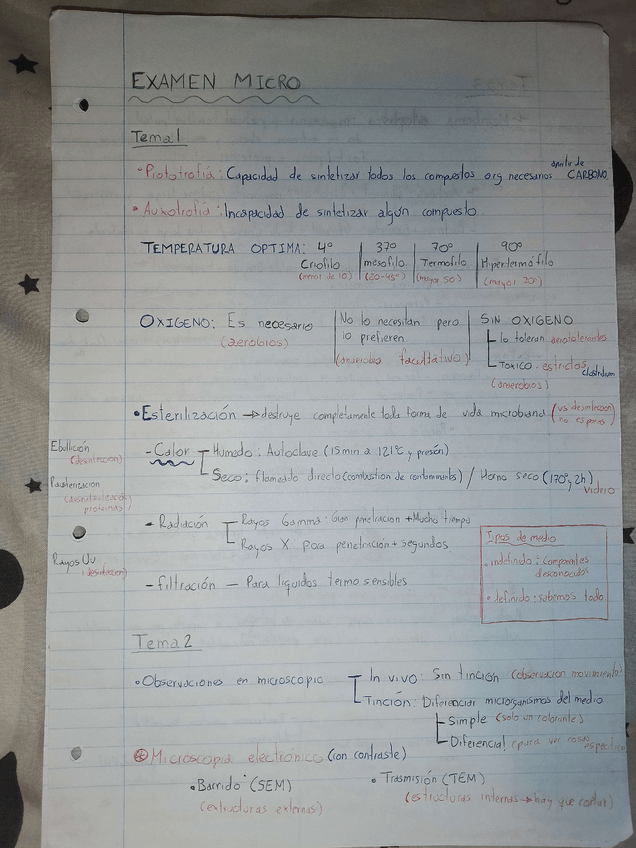 EXAMEN MICRO
Tema 1
• Prototrofia: Capacidad de sintetizar todos los compuestos org necesarios apartir de CARBONO.
• Auxotrofia: Incapacidad de sintetizar algún compuesto.
TEMPERATURA OPTIMA: 4º | 37º | 70º | 90º
Criofilo | mesofilo | Termofilo | Hipertermófilo
(menor de 10) | (20-45º) | (mayor 50) | (mayor º)
OXIGENO: Es necesario | No lo necesitan pero | SIN OXIGENO
(aerobios) | lo prefieren | lo toleran aerotolerantes
(anaerobio facultativo) | TOXICO - estrictos clostridium
(anaerobios)
• Esterilización → destruye completamente toda forma de vida microbiana (vs desinfeccion no esporas)
Ebullición
(desinfeccion)
- Calor Humedo: Autoclave (15min a 121ºC y presión)
Seco: flameado directo (combustion de contaminantes) / Horno seco (170º, 2h) vidrio
Pasterizacion
(desnaturalización proteinas)
- Radiación Rayos Gamma: Gran penetracion + Mucho tiempo
Rayos X poca penetración + segundos
Rayos Uv
(desinfeccion)
- filtración — Para líquidos termo sensibles
Tipos de medio
• indefinido: componentes
desconocidos
• definido: sabemos todo
Tema 2
• Observaciones en microscopio In vivo: Sin tinción (observacion movimiento)
Tinción: Diferenciar microrganismos del medio
Simple (solo un colorante)
Diferencial (para ver cosas especificas
Microscopia electrónico (con contraste)
• Barrido (SEM) • Trasmisión (TEM)
(extructuras externas) (estructuras internas → hay que cortar)